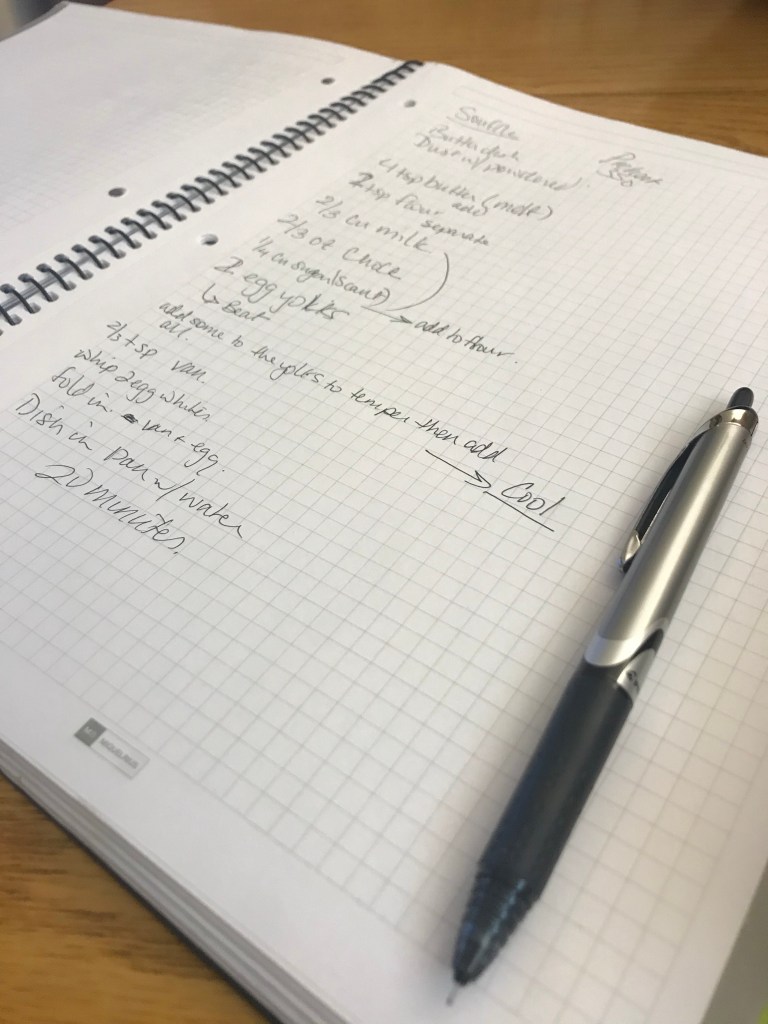 Souffle
Preheat
350
Butter dish
Dust w/ powdered
4 tsp butter (melt)
add
2 tsp flour
separate
2/3 cu milk
2/3 oz Choc
1/4 cu sugar (scant)
2 egg yolks → add to flour.
↳ Beat
add some to the yolks to temper then add
all.
→ Cool
2/3 tsp van.
whip 2 egg whites
fold in. van + egg.
Dish in pan w/ water
20 minutes.